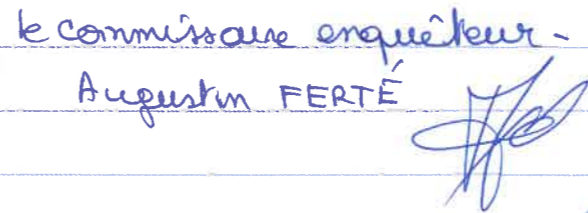 le commissaire enquêteur -
Augustin FERTÉ